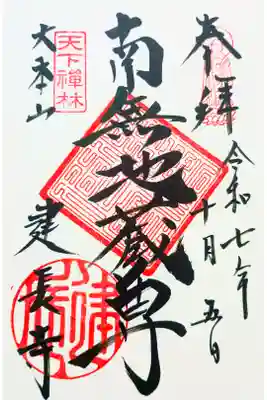 奉拝
令和七年十月五日
南無地蔵尊
天下禅林
大本山
建長寺